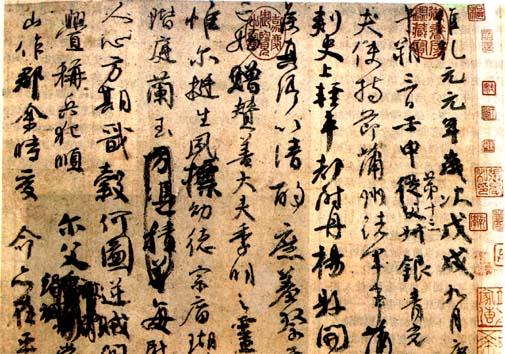 維乾元元年歲次戊戌九月庚
午朔三日壬申第十三叔銀青光
夫使持節蒲州諸軍事蒲
刺史上輕車都尉丹楊縣開國
侯真卿以清酌庶羞祭
亡姪贈贊善大夫季明之靈
惟爾挺生夙標幼德宗廟瑚
階庭蘭玉方憑積善每慰
人心方期戩穀何圖逆賊間
釁稱兵犯順 爾父
山作郡余時受 命亦在平